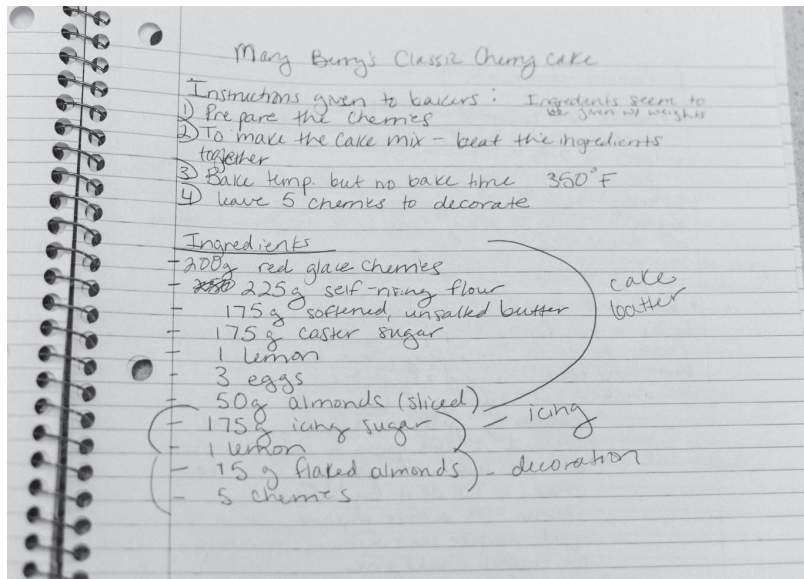 Mary Berry's Classic Cherry cake
Instructions given to bakers: Ingredients seem to
be given w/ weights
1) Prepare the Cherries
2) To make the Cake mix - beat the ingredients
together
3) Bake temp. but no bake time 350°F
4) leave 5 cherries to decorate
Ingredients
- 200g red glace cherries
- 225g self-rising flour
- 175g softened, unsalted butter
- 175g caster sugar
- 1 lemon
- 3 eggs
- 50g almonds (sliced)
cake
batter
- 175g icing sugar = icing
- 1 lemon
- 15 g flaked almonds - decoration
- 5 cherries